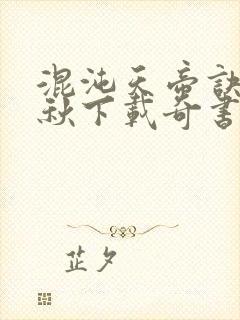 混沌天帝訣
秋下載奇書
芷夕